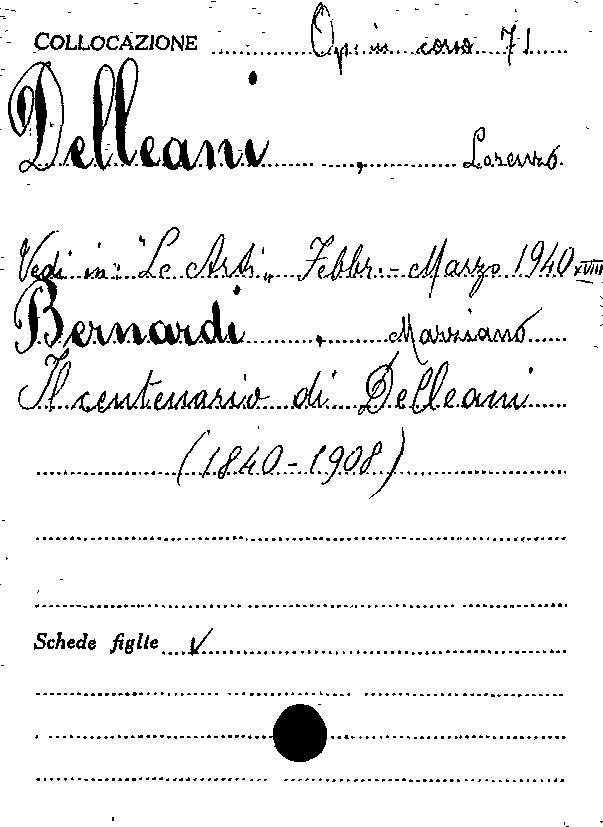 COLLOCAZIONE Op. in corso 71
Delleani, Lorenzo
Vedi in: "Le Arti" Febbr. - Marzo 1940 XVIII
Bernardi, Marziano
Il centenario di Delleani
(1840-1908)
Schede figlie ✓